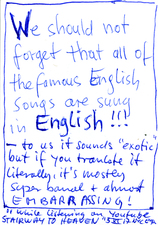 We should not
forget that all of
the famous English
songs are sung
in English!!!
— to us it sounds "exotic"
but if you translate it
literally, it's mostly
super banal + almost
EMBARRASSING!
" while listening on Youtube
STAIRWAY TO HEAVEN"